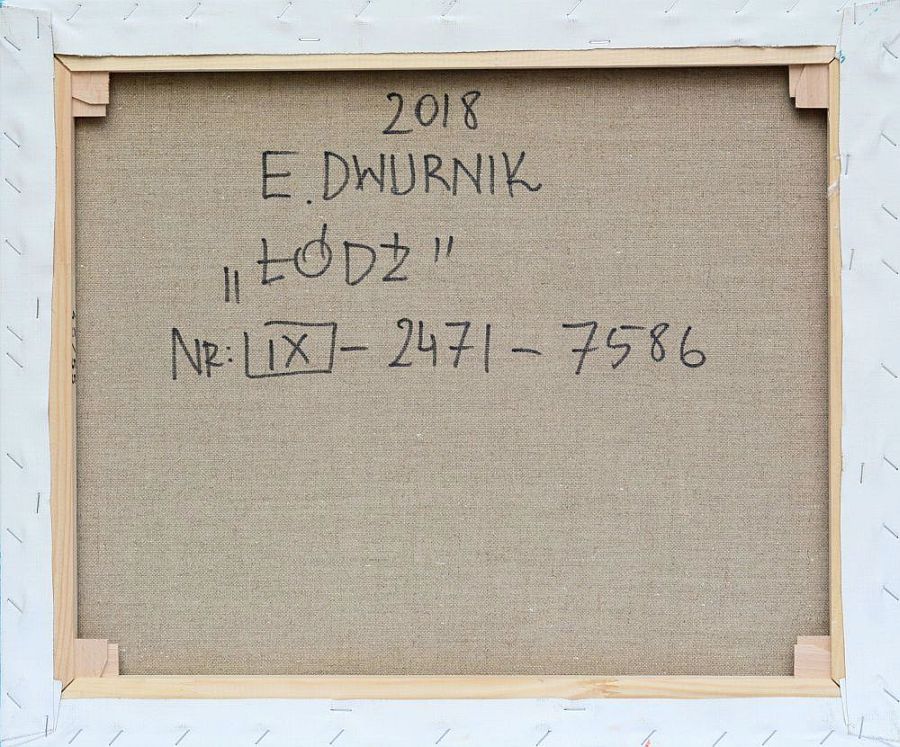 2018
E. DWURNIK
„ŁÓDŹ"
NR: IX - 2471 - 7586